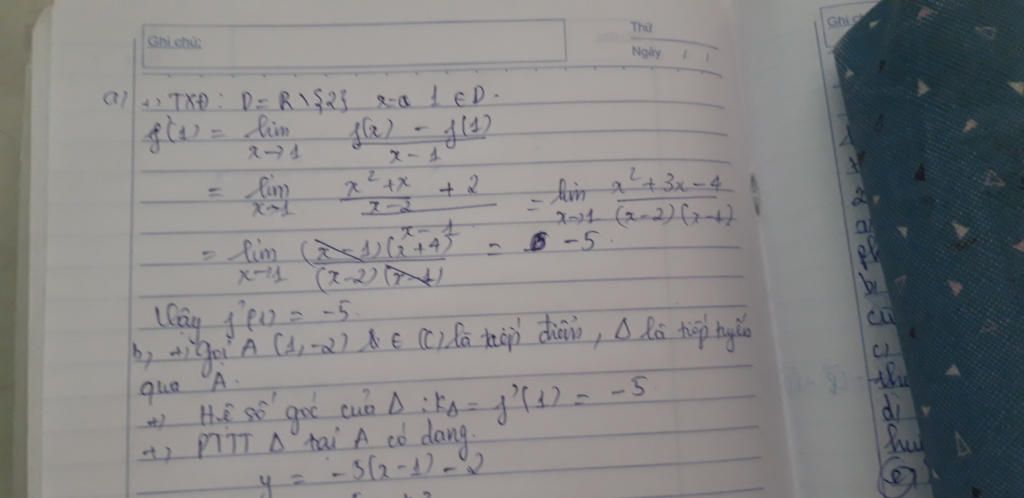 Ghi chú:
Thứ
Ngày / /
a) +) TXĐ: D = R \ {2} 1 ∈ D.
f'(1) = lim x→1 f(x) - f(1) / x - 1
= lim x→1 x² + x / x - 2 + 2 / x - 1 = lim x→1 x² + 3x - 4 / (x - 2)(x - 1)
= lim x→1 (x - 1)(x + 4) / (x - 2)(x - 1) = -5.
Vậy f'(1) = -5.
b, +, Gọi A (1, -2) ∈ (C) là tiếp điểm, Δ là tiếp tuyến
qua A.
+) Hệ số góc của Δ: KΔ = f'(1) = -5
+) PTTT Δ tại A có dạng.
y = -5(x - 1) - 2
Ghi
2
a
b,
c)
thu
d)
hu